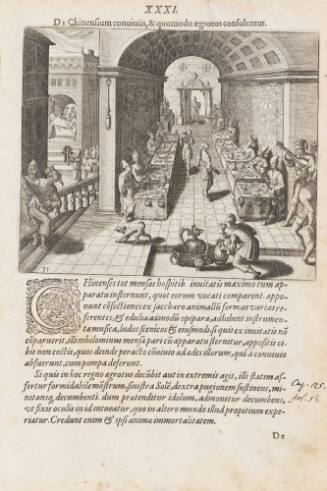 XXXI.
De Chinensium conuiuiis, & quomodo ægrotos consolentur.
31
CHinenses tot mensas hospitib. inuitatis maximo cum ap-
paratu insternunt, quot eorum vocati comparent. appo-
nunt cōfectiones ex saccharo animalliū formas varias re-
ferentes, & edulia admodū opipara, adhibent instrumen-
ta musica, ludos scenicos & eiusmodi. si quis ex inuitatis nō
cōparuerit, illi nihilominus mensa pari cū apparatu sternitur, appositis ci-
bis non coctis, quos deinde peracto cōuiuio ad ædes illorum, qui a conuiuio
abfuerunt, cum pompa deferunt.
Si quis in hoc regno ægrotus decūbit aut in extremis agit, illi statim af-
fertur formidabile mōstrum, sinistra Solē, dextra pugionem sustinens, mi-
nitansq́, decumbenti. dum prætenditur idolum, admonetur decumbens,
vt fixis oculis in id intueatur, quo in altero mundo illud propitium expe-
riatur. Credunt enim & ipsi animæ immortalitatem.
De